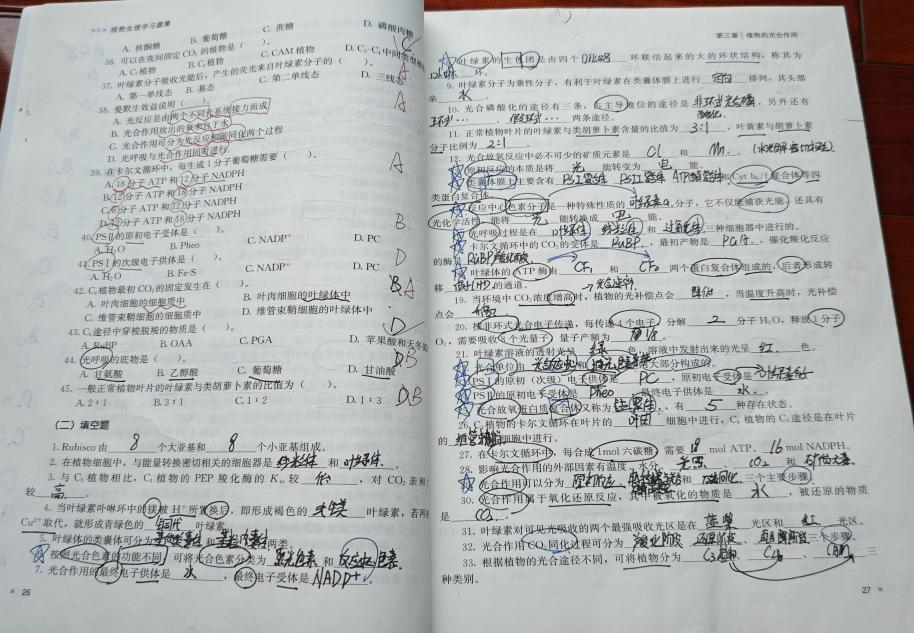 >>> 植物生理学习题集
A. 核酮糖 B. 葡萄糖 C. 蔗糖 D. 磷酸丙糖
36. 可以在夜间固定 CO₂ 的植物是( )。
A. C₃植物 B. C₄植物 C. CAM 植物 D. C₃-C₄中间
37. 叶绿素分子吸收光能后,产生的荧光来自叶绿素分子的( )。
A. 第一单线态 B. 基态 C. 第二单线态 D. 三线态
38. 爱默生效益说明( )。
A. 光反应是由两个不同光系统接力而成
B. 光合作用放出的氧来自于水
C. 光合作用可分为光反应和碳同化两个过程
D. 光呼吸与光合作用同时进行
39. 在卡尔文循环中,每生成1分子葡萄糖需要( )。
A. 18分子 ATP 和12分子 NADPH
B. 12分子 ATP 和18分子 NADPH
C. 分子 ATP 和12分子 NADPH
D. 12分子 ATP 和18分子 NADPH
40. PSⅡ的原初电子受体是( )。
A. H₂O B. Pheo C. NADP⁺ D. PC
41. PSⅠ的次级电子供体是( )。
A. H₂O B. Fe-S C. NADP⁺ D. PC
42. C₄植物最初 CO₂ 的固定发生在( )。
A. 叶肉细胞的细胞质中 B. 叶肉细胞的叶绿体中
C. 维管束鞘细胞的细胞质中 D. 维管束鞘细胞的叶绿体中
43. C₄途径中穿梭脱羧的物质是( )。
A. RuBP B. OAA C. PGA D. 苹果酸和天冬氨
44. 光呼吸的底物是( )。
A. 甘氨酸 B. 乙醇酸 C. 葡萄糖 D. 甘油酸
45. 一般正常植物叶片的叶绿素与类胡萝卜素的比值为( )。
A. 2:1 B. 3:1 C. 1:2 D. 1:3
(二) 填空题
1. Rubisco 由 8 个大亚基和 8 个小亚基组成。
2. 在植物细胞中,与能量转换密切相关的细胞器是 线粒体 和 叶绿体 。
3. 与 C₃ 植物相比,C₄ 植物的 PEP 羧化酶的 Kₘ 较 低 ,对 CO₂ 亲和
较 高 。
4. 当叶绿素卟啉环中的镁被 H⁺ 所置换后,即形成褐色的 去镁 叶绿素,若再
Cu²⁺取代,就形成青绿色的 铜代 叶绿素。
5. 叶绿体的类囊体可分为 和 两类。
按照光合色素的功能不同,可将光合色素分类为 聚光色素 和 反应中心色素。
7. 光合作用的最终电子供体是 水 ,最终电子受体是 NADP⁺。
26
第三章 | 植物的光合作用
叶绿素的 是由四个 环联结起来的大的环状结构,称其为
环。
9. 叶绿素分子为兼性分子,有利于叶绿素在类囊体膜上进行 定向 排列,其头部
亲 水 。
10. 光合磷酸化的途径有三条,占主导地位的途径是 非环式光合磷酸化,另外还有
环式… 、 假环式… 两条途径。
11. 正常植物叶片的叶绿素与类胡萝卜素含量的比值为 3:1 ,叶黄素与胡萝卜素
分子比例为 2:1 。
12. 光合放氧反应中必不可少的矿质元素是 Cl 和 Mn 。
原初反应的本质是将 光 能转变为 电 能。
类囊体膜上主要含有 PSⅠ复合体、PSⅡ复合体、ATP酶复合体和 Cyt b₆/f 复合体等四
类蛋白复合体。
反应中心色素分子是一种特殊性质的 叶绿素a 分子,它不仅能捕获光能,还具有
光化学活性,能将 光 能转换成 电 能。
光呼吸过程是在 叶绿体 、 线粒体 和 过氧化体 三种细胞器中进行的。
卡尔文循环中的 CO₂ 的受体是 RuBP ,最初产物是 PGA ,催化羧化反应
的酶是 RuBP羧化酶 。
叶绿体的 ATP 酶由 CF₁ 和 CF₀ 两个蛋白复合体组成的,后者形成转
移 的通道。
19. 当环境中 CO₂ 浓度增高时,植物的光补偿点会 降低 ,当温度升高时,光补偿
点会 。
20. 按非环式光合电子传递,每传递4个电子,分解 2 分子 H₂O,释放1分子
O₂,需要吸收8个光量子,量子产额为 。
21. 叶绿素溶液的透射光呈 绿 色,溶液中发射出来的光呈 红 色。
光合单位由 和 两大部分构成的。
PSⅠ的原初(次级)电子供体是 PC ,原初电子受体是
PSⅡ的原初电子受体是 Pheo ,最终电子供体是 水 。
光合放氧蛋白质复合体又称为 ,有 5 种存在状态。
26. C₄ 植物的卡尔文循环在叶片的 细胞中进行,C₄ 植物的 C₃ 途径是在叶片
的 维管束鞘 细胞中进行。
27. 在卡尔文循环中,每合成1mol六碳糖,需要 18 mol ATP、 mol NADPH。
28. 影响光合作用的外部因素有温度、水分、 光照 、 CO₂ 和 矿质元素。
光合作用可以分为 原初反应 、 和 碳同化 三个主要步骤。
30. 光合作用属于氧化还原反应,其中被氧化的物质是 水 ,被还原的物质
是 CO₂ 。
31. 叶绿素对可见光吸收的两个最强吸收光区是在 蓝紫 光区和 红 光区。
32. 光合作用 CO₂ 同化过程可分为 羧化阶段 、 还原阶段 、 三个步骤。
33. 根据植物的光合途径不同,可将植物分为 C₃ 、 C₄ 、 CAM 三
种类别。
27